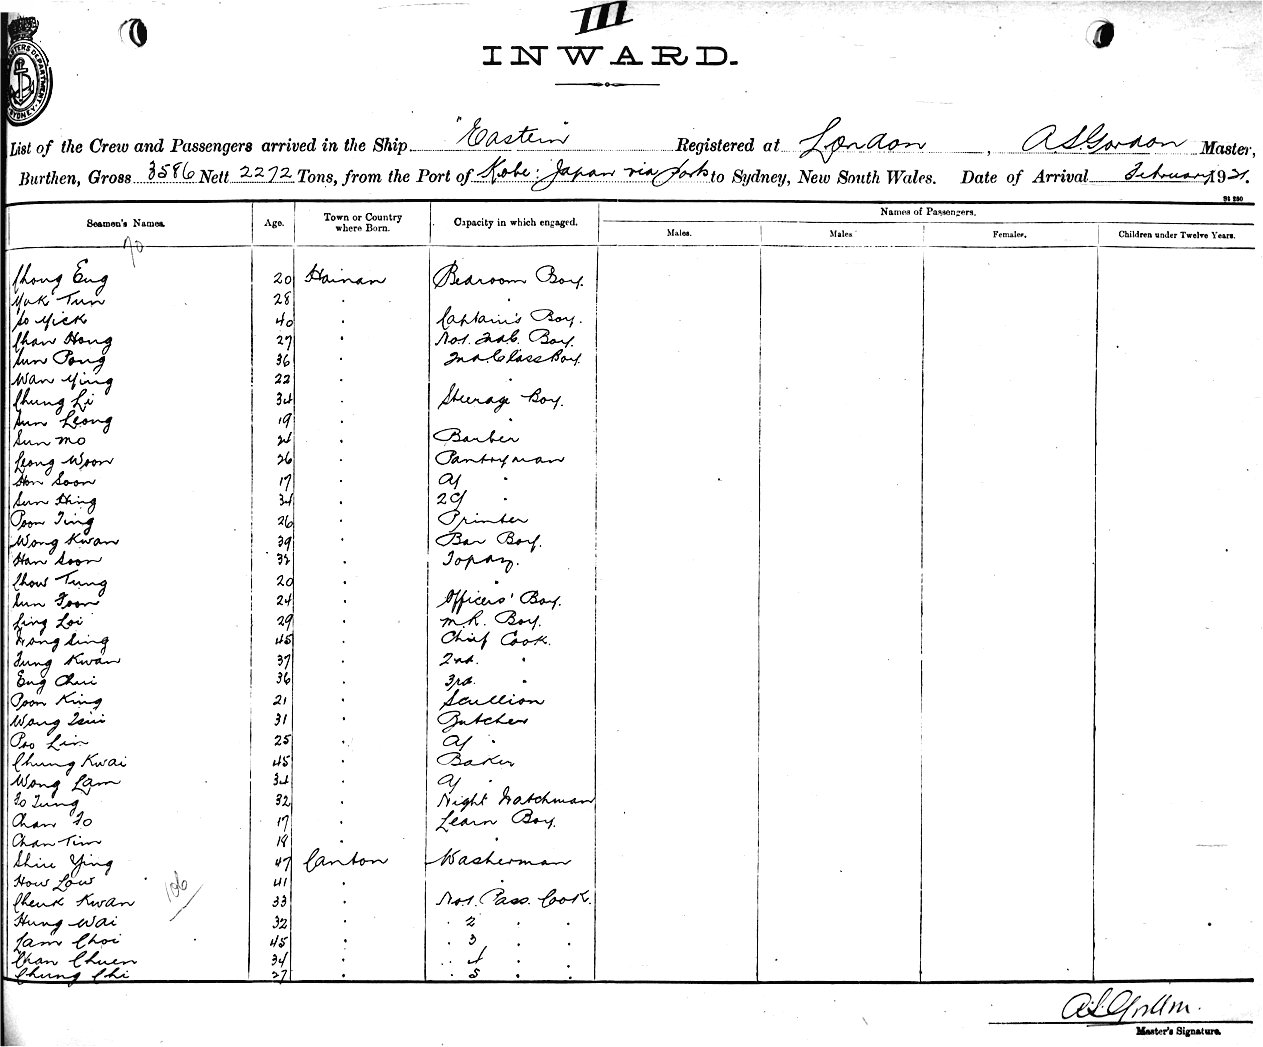 III
INWARD.
List of the Crew and Passengers arrived in the Ship "Eastern" Registered at London, A S Gordon Master,
Burthen, Gross 3586 Nett 2272 Tons, from the Port of Kobe: Japan via Ports to Sydney, New South Wales. Date of Arrival February 1921.
Seamen's Names. Age. Town or Country where Born. Capacity in which engaged. Names of Passengers.
Males. Males Females. Children under Twelve Years.
70
Chong Eng 20 Hainan Bedroom Boy.
Yuk Tun 28 " "
So Yick 40 " Captain's Boy.
Chan Hong 27 " No1. 2nd C. Boy.
Sun Pong 36 " 2nd Class Boy.
Wan Ying 22 " "
Chung Li 34 " Steerage Boy.
Sun Leong 19 " "
Sun Mo 24 " Barber
Leong Woon 26 " Pantryman
Hon Soon 17 " a/ "
Sun Hing 34 " 2a/ "
Poon Ting 26 " Printer
Wong Kwan 39 " Bar Boy.
Han Soon 32 " Topaz.
Chow Tung 20 " "
Sun Toon 24 " Officers' Boy.
Ling Loi 29 " M.R. Boy.
Wong Sing 45 " Chief Cook.
Tung Kwan 37 " 2nd. "
Eng Chui 36 " 3rd. "
Poon King 21 " Scullion
Wong Tsui 31 " Butcher
Poo Lin 25 " a/ "
Chung Kwai 45 " Baker
Wong Lam 34 " a/ "
Fo Tung 32 " Night Watchman
Chan Fo 17 " Learn Boy.
Chan Tim 19 " "
Shiu Ying 47 Canton Washerman
How Low 41 " "
106
Cheuk Kwan 33 " No1. Pass. Cook.
Hung Wai 32 " " 2 " "
Lam Choi 45 " " 3 " "
Chan Chuen 34 " " 4 " "
Chung Chi 27 " " 5 " "
A.S. Gordon.
Master's Signature.